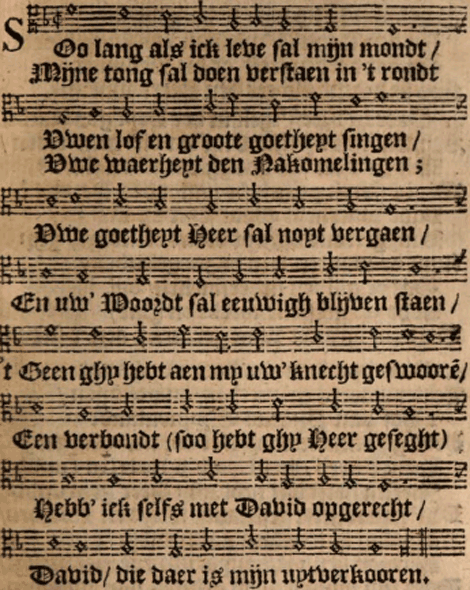 SOo lang als ick leve sal mijn mondt /
Mijne tong sal doen verstaen in 't rondt
Uwen lof en groote goetheyt singen /
Uwe waerheyt den Nakomelingen ;
Uwe goetheyt Heer sal noyt vergaen /
En uw' Woordt sal eeuwigh blijven staen /
't Geen ghy hebt aen my uw' knecht geswoorē /
Een verbondt (soo hebt ghy Heer geseght)
Hebb' ick selfs met David opgerecht /
David / die daer is mijn uytverkooren.